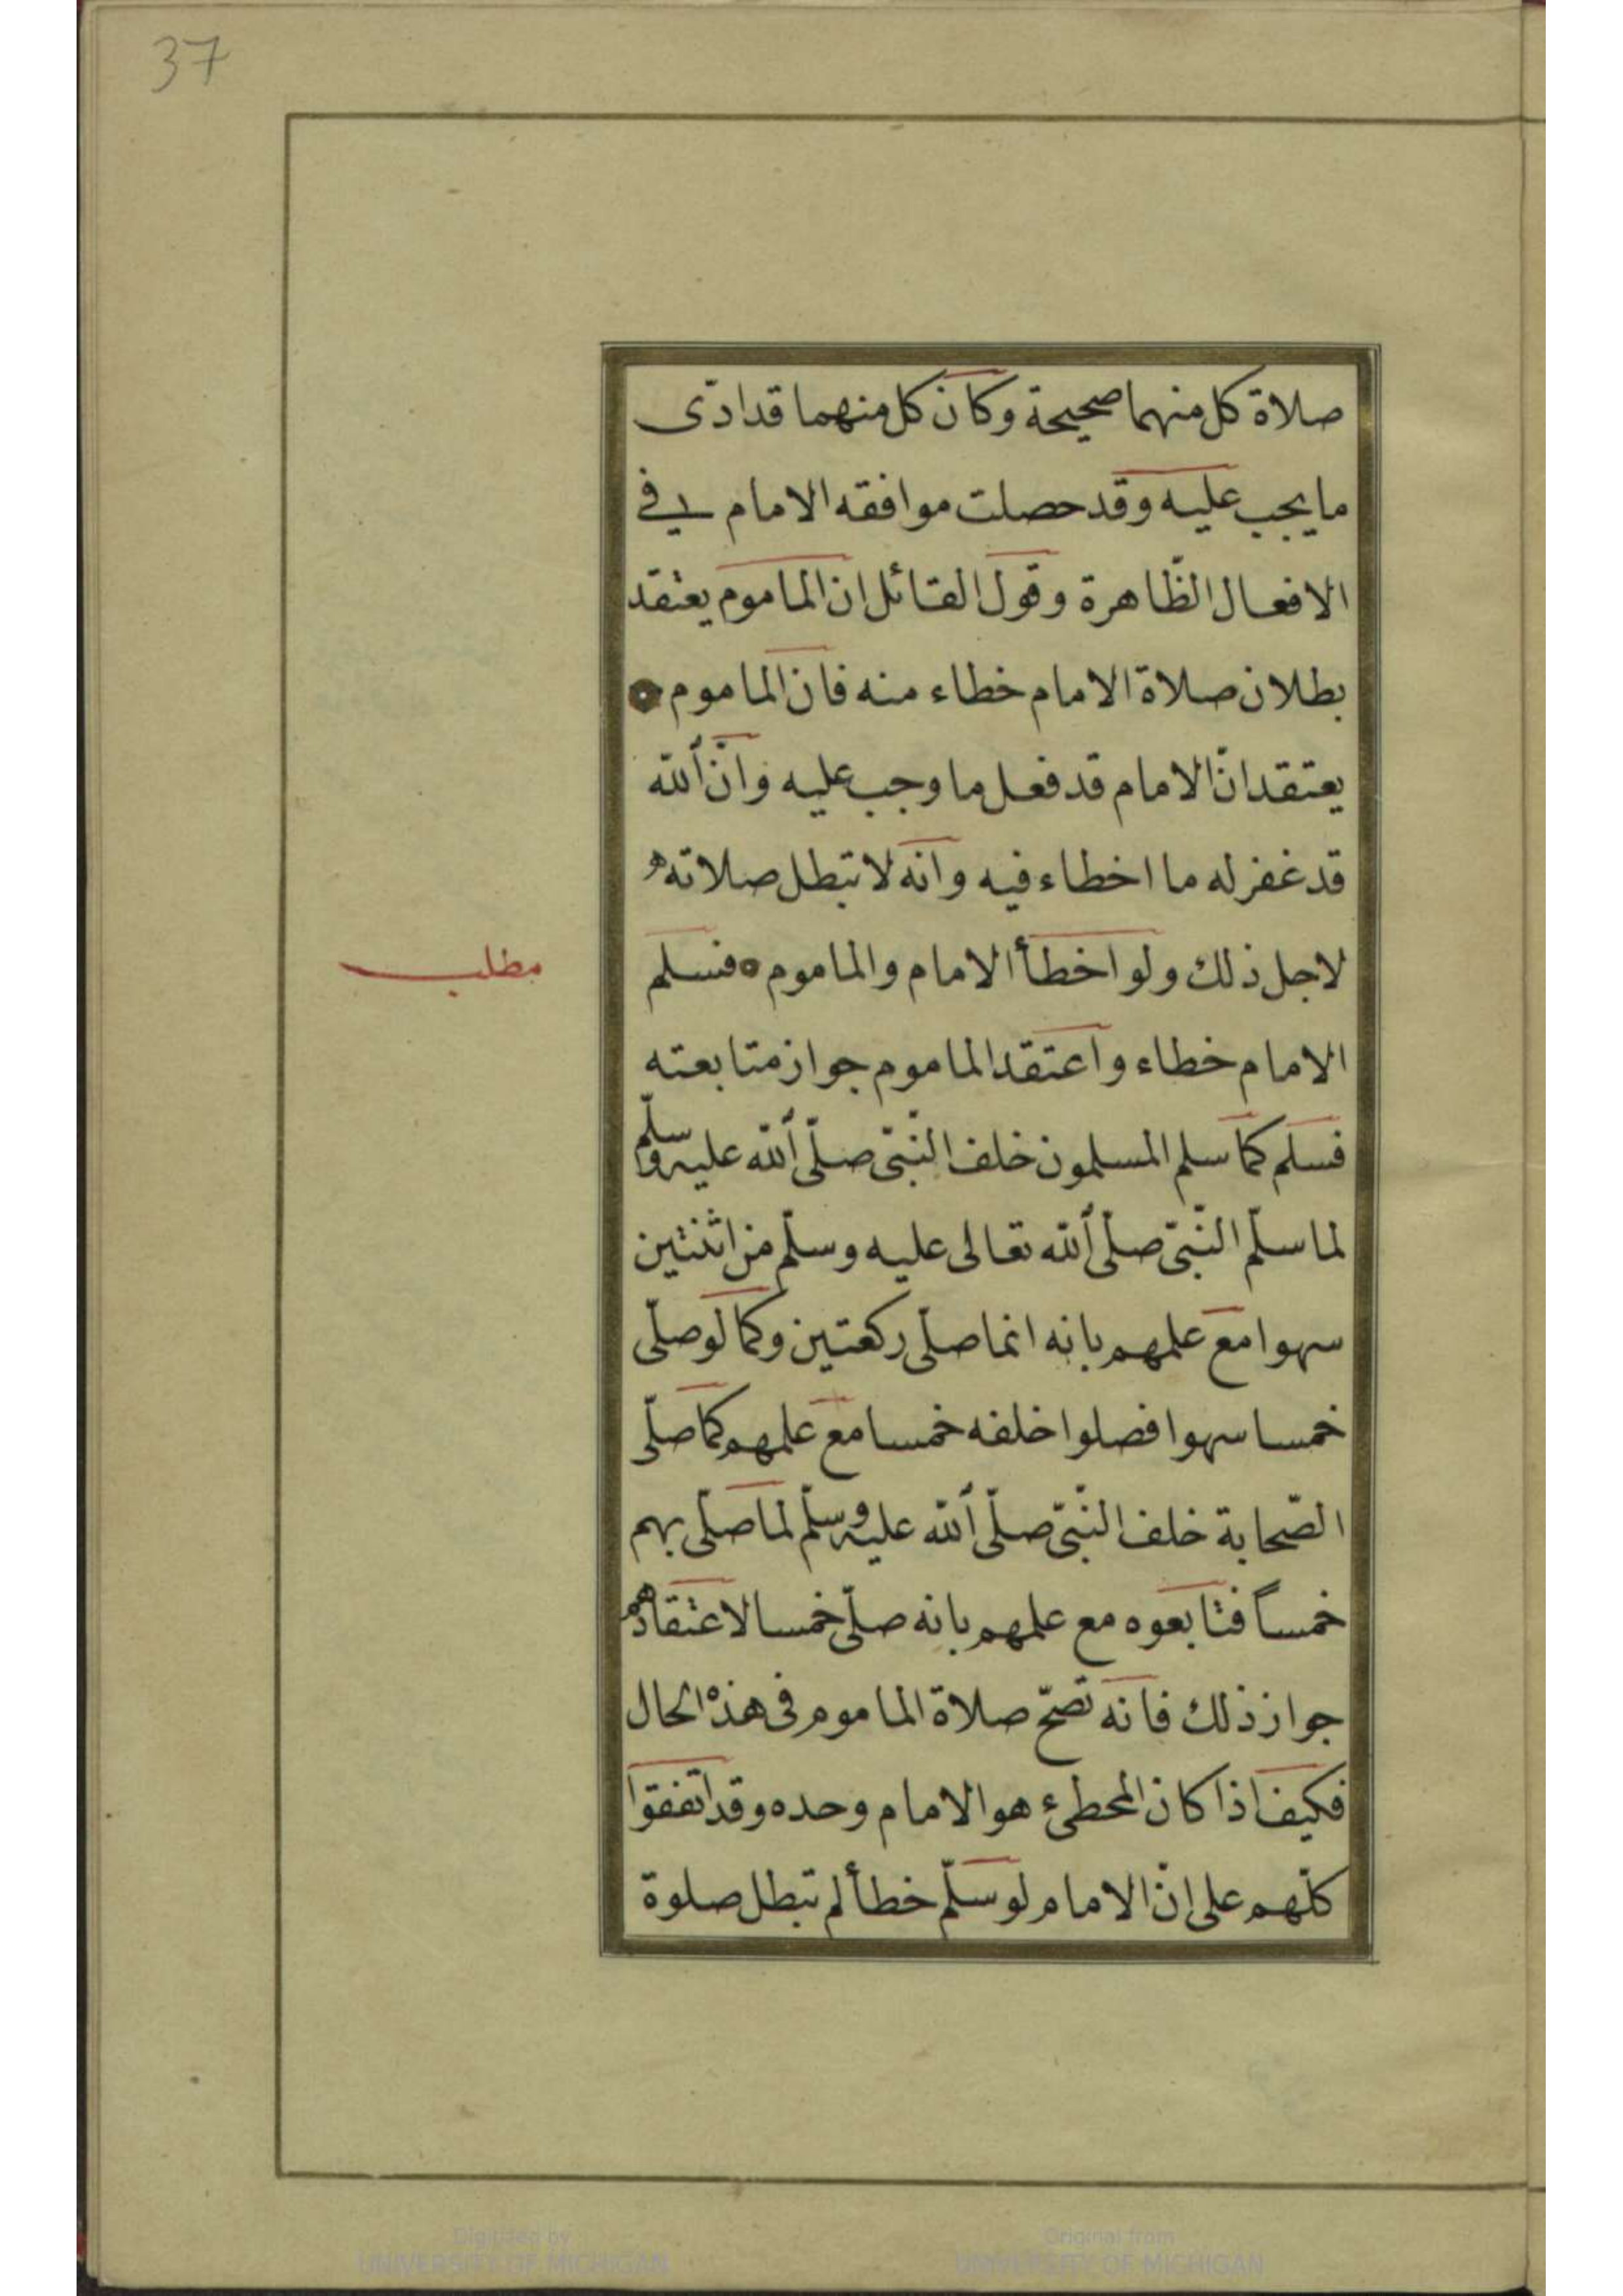 37
صلاة كل منهما صحيحة وكان كل منهما قد ادّى
ما يجب عليه وقد حصلت موافقه الامام في
الافعال الظّاهرة وقول القائل ان الماموم يعتقد
بطلان صلاة الامام خطاء منه فان الماموم
يعتقد انّ الامام قد فعل ما وجب عليه وانّ ألله
قد غفر له ما اخطاء فيه وانه لا تبطل صلاته
لاجل ذلك ولو اخطأ الامام والماموم فسلم
مطلب
الامام خطاء واعتقد الماموم جواز متابعته
فسلم كما سلم المسلمون خلف النّبيّ صلّى ألله عليه وسلّم
لما سلّم النّبيّ صلّى ألله تعالى عليه وسلّم من اثنتين
سهوا مع علمهم بانه انما صلّى ركعتين وكما لو صلّى
خمسا سهوا فصلوا خلفه خمسا مع علمهم كما صلّى
الصّحابة خلف النّبيّ صلّى ألله عليه وسلّم لما صلّى بهم
خمساً فتابعوه مع علمهم بانه صلّى خمسا لاعتقادهم
جواز ذلك فانه تصحّ صلاة الماموم فى هذه الحال
فكيف اذا كان المحطئ هو الامام وحده وقد اتفقوا
كلّهم على انّ الامام لو سلّم خطأ لم تبطل صلوة
Digitized by
UNIVERSITY OF MICHIGAN
Original from
UNIVERSITY OF MICHIGAN